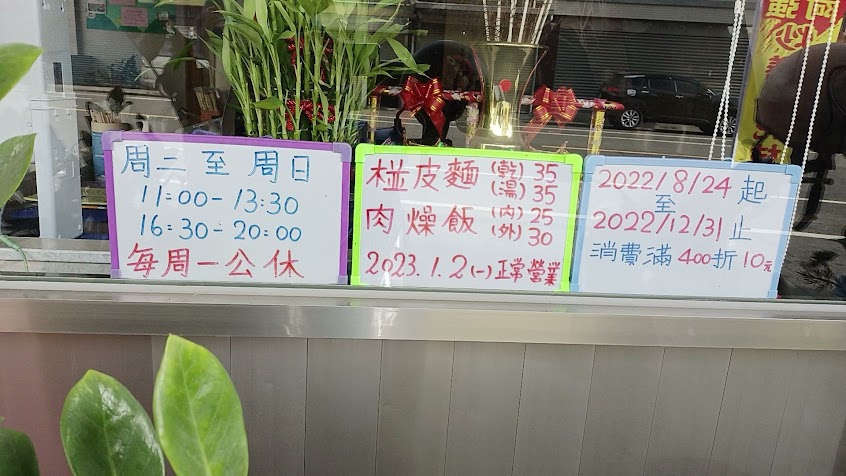 周二至周日
11:00-13:30
16:30-20:00
每周一公休
椪皮麵(乾)35
(湯)35
肉燥飯(內)25
(外)30
2023.1.2(一)正常營業
2022/8/24起
至
2022/12/31止
消費滿400折10元